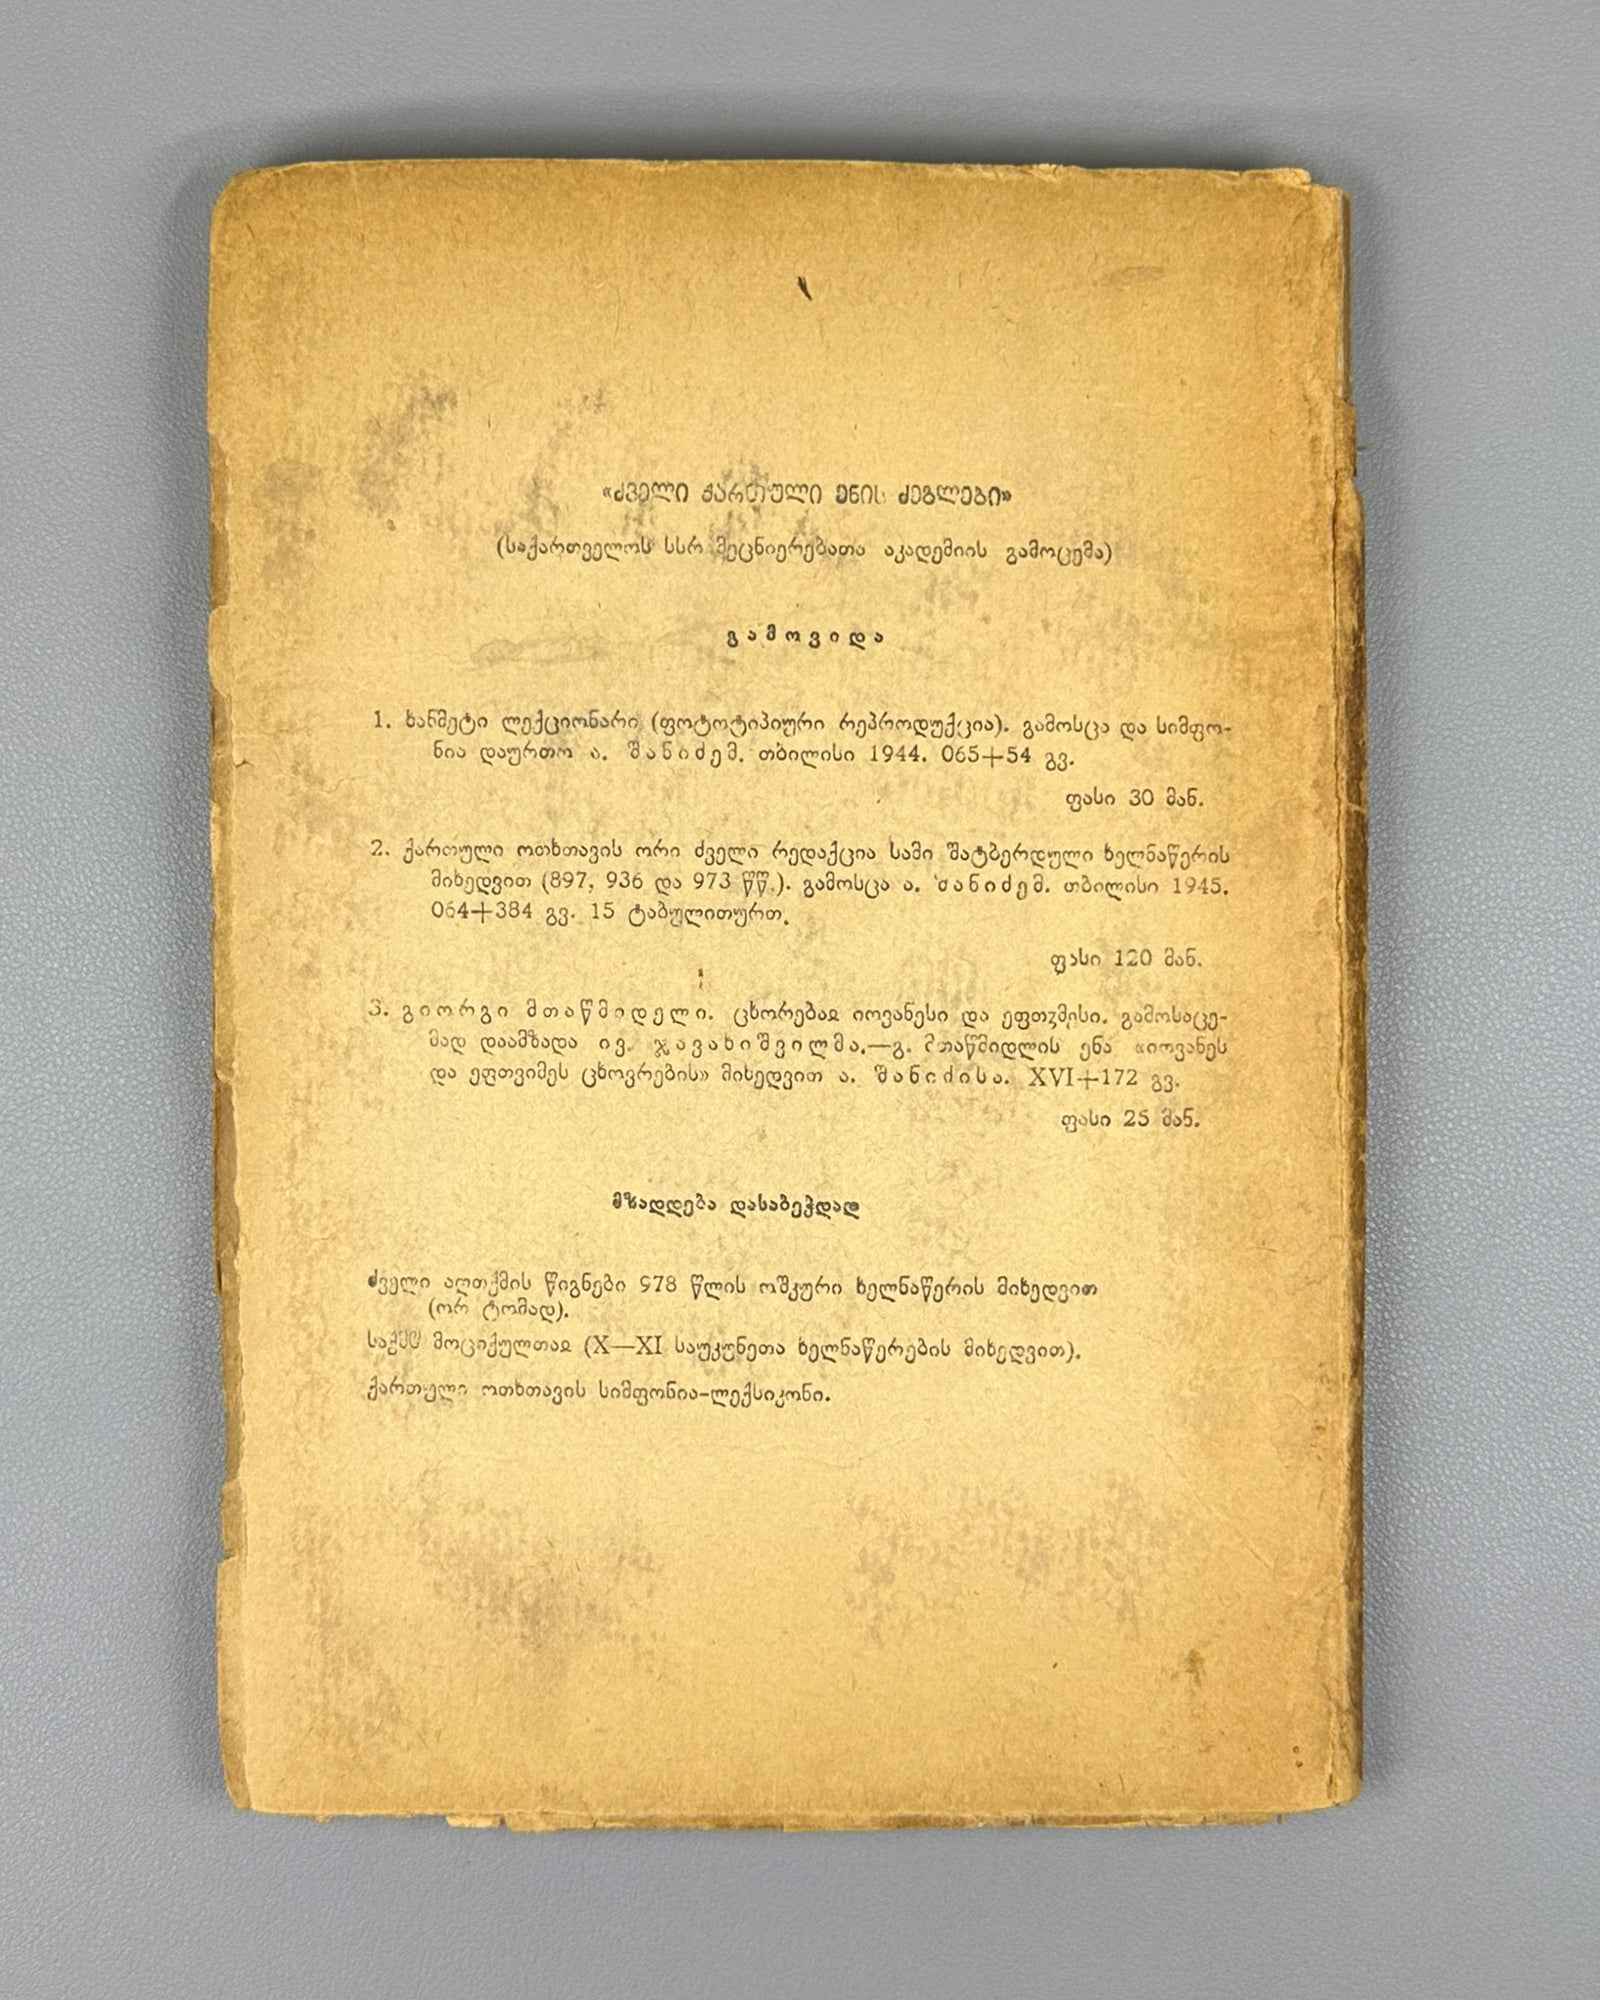 «ძველი ქართული ენის ძეგლები»
(საქართველოს სსრ მეცნიერებათა აკადემიის გამოცემა)
გამოვიდა
1. ხანმეტი ლექციონარი (ფოტოტიპიური რეპროდუქცია). გამოსცა და სიმფო-
ნია დაურთო ა. შანიძემ. თბილისი 1944. 065+54 გვ.
ფასი 30 მან.
2. ქართული ოთხთავის ორი ძველი რედაქცია სამი შატბერდული ხელნაწერის
მიხედვით (897, 936 და 973 წწ.). გამოსცა ა. შანიძემ. თბილისი 1945.
064+384 გვ. 15 ტაბულითურთ.
ფასი 120 მან.
3. გიორგი მთაწმიდელი. ცხორებაჲ იოვანესი და ეფთჳმესი. გამოსაცე-
მად დაამზადა ივ. ჯავახიშვილმა.—გ. მთაწმიდლის ენა «იოვანეს
და ეფთვიმეს ცხოვრების» მიხედვით ა. შანიძისა. XVI+172 გვ.
ფასი 25 მან.
მზადდება დასაბეჭდად
ძველი აღთქმის წიგნები 978 წლის ოშკური ხელნაწერის მიხედვით
(ორ ტომად).
საქმე მოციქულთაჲ (X—XI საუკუნეთა ხელნაწერების მიხედვით).
ქართული ოთხთავის სიმფონია-ლექსიკონი.